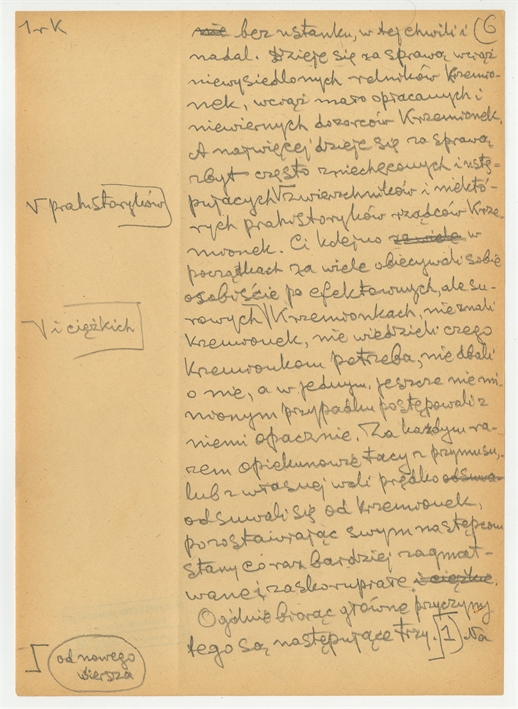 1-rK
6
nie bez ustanku, w tej chwili i
nadal. Dzieje się za sprawą wciąż
niewysiedlonych rolników Krzemio-
nek, wciąż mało opłacanych i
niewiernych dozorców Krzemionek.
A najwięcej dzieje się za sprawą
zbyt często zniechęconych i ustę-
pujących V zwierzchników i niektó-
V prahistoryków
rych prahistoryków rządców Krze-
mionek. Ci kolejno za wiele w
początkach za wiele obiecywali sobie
osobiście po efektownych, ale su-
rowych V Krzemionkach, nie znali
V i ciężkich
Krzemionek, nie wiedzieli czego
Krzemionkom potrzeba, nie dbali
o nie, a w jednym, jeszcze nie mi-
nionym przypadku postępowali z
niemi opacznie. Za każdym ra-
zem opiekunowie tacy z przymusu,
lub z własnej woli prędko odsuwa-
odsuwali się od Krzemionek,
pozostawiając swym następcom
stany coraz bardziej zagmat-
wane i zaskorupiałe i ciężkie.
Ogólnie biorąc główne przyczyny
tego są następujące trzy. 1) Na
od nowego
wiersza